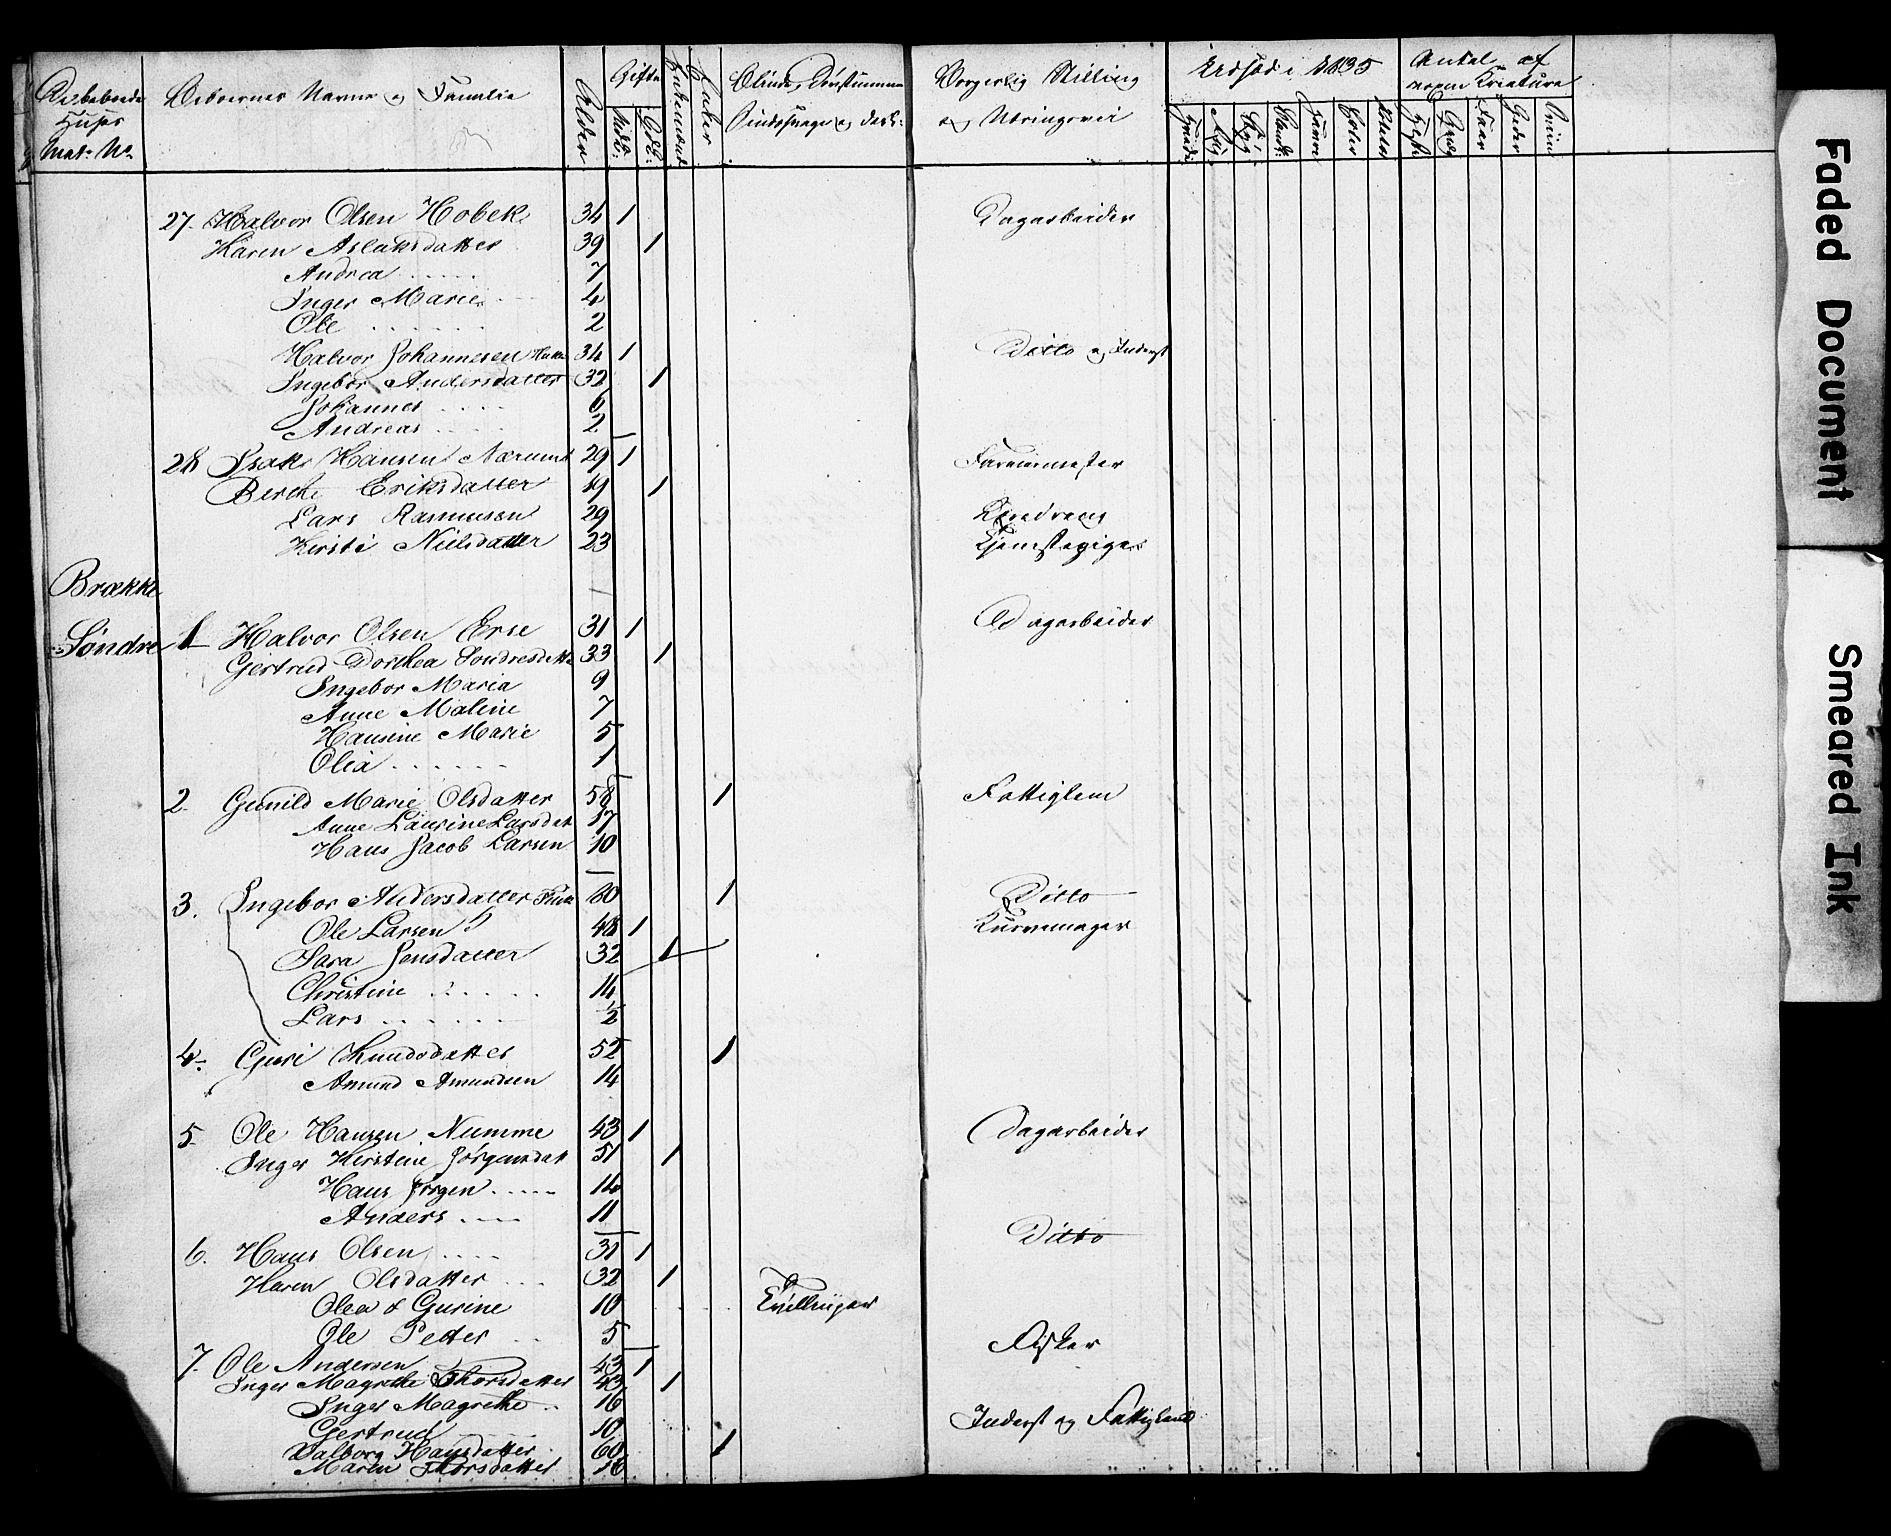 De beboede Huses Mat: No. | Beboernes Navne og Familie | Alder | Gifte | Enker | Blinde, Døvstumme Sindssvage og døde | Borgerlig Stilling og Næringsvei | Udsæd i 1835 | Antal af Kreature
Byg | Havre | Erter | Heste | Faar | Geder | Sviin
27. Halvor Olsen Hobek 34 1 Dagarbeider
Karen Aslaksdatter 39 1
Andrea ..... 7
Inger Marie 4
Ole ...... 2
Halvor Johannesen 34 1 Ditto og Inderst
Ingebor Andersdatter 32 1
Johannes .... 6
Andreas .... 2
28 Isaks Hansen Nærums 29 1 Farvermester
Berthe Eriksdatter 19 1
Lars Rasmusen 29
Kirsti Nielsdatter 23 Tjenestepiger
Brække
Søndre 1 Halvor Olsen Erse 31 1 Dagarbeider
Gertrud Dorthea Sondresdatt 33 1
Ingebor Maria 9
Anne Maline 7
Hansine Marie 5
Olia ...... 1
2. Gunild Marie Olsdatter 58 1 Fattiglem
Anne Laurine Larsdat 17
Hans Jacob Larsen 10
3. Ingebor Andersdatter 80 1 Ditto
Ole Larsen 48 1 Kurvemager
Sara Jensdatter 32 1
Christine ...... 14
Lars ...... ½
4. Guri Knudsdatter 52 1
Amund Amundsen 14
5. Ole Hansen Numme 43 1 Dagarbeider
Inger Kirstine Jørgensdat 51 1
Hans Jørgen ..... 14
Anders .... 11
6. Hans Olsen .... 31 1 Ditto
Karen Olsdatter ... 32 1
Olea & Gurine 10 Tvillinger
Ole Petter .. 5
7. Ole Andersen 43 1 Fisker
Inger Magrethe Thorsdatter 43 1
Inger Magrethe .. 16
Gertrud ..... 10
Valborg Hansdatter 60 1 Inderst og Fattiglem
Maren Thorsdatter 16
Faded Document
Smeared Ink